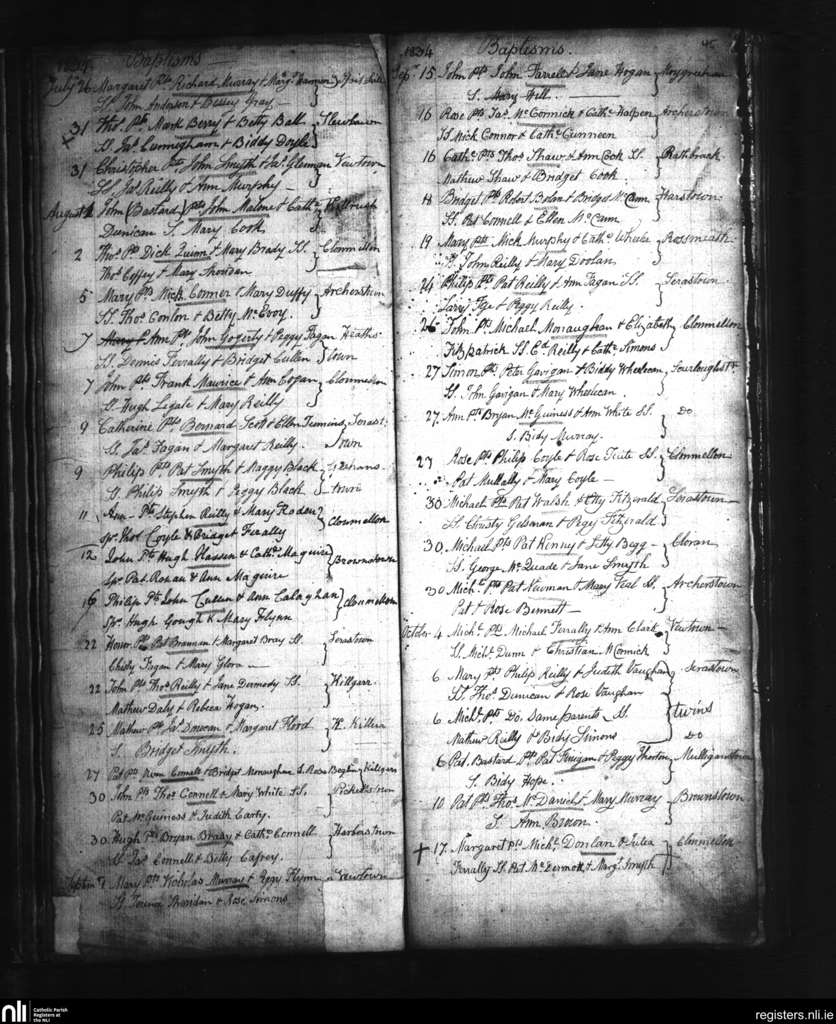 1834 Baptisms
July 26 Margaret Pts Richard Murray & Margt
SS. John Anderson & Bessey Gray
31 Thos. Pts Mark Berry & Betty Ball
SS. Js. Cunnigham & Biddy Doyle
31 Christopher Pts John Smyth & Newtown
SS. Js. Reilly & Ann Murphy
August 1 John Bastard Pts John Malone & Cath.
Dunican S. Mary Cook
2 Thos Pts Dick Quinn & Mary Brady SS. Clonmellon
Thos Coffey & Mary Sheridan
5 Mary Pts Nick Conner & Mary Duffy Archerstown
SS. Thos Conlon & Betty McEvoy
7 Ann Pts John Gogerty & Peggy Fagan Heaths
SS. Dennis Ferrally & Bridget Cullen town
7 John Pts Frank Maurice & Ann Cogan Clonmellon
SS. Hugh Legate & Mary Reilly
9 Catherine Pts Bernard Scott & Ellen Seras
SS. Jas. Fagan & Margaret Reilly town
9 Philip Pts Pat Smyth & Maggy Black
SS. Philip Smyth & Peggy Black town
11 Ann Pts Stephen Reilly & Mary Roden Clonmellon
Sps. Thos Coyle & Bridget Ferally
12 John Pts Hugh & Cathe Maguire Brownstown
Sps. Pat Ronan & Ann Maguire
16 Philip Pts John Cullen & Ann Calaghan Clonmellon
Sps. Hugh Gough & Mary Flynn
22 Honor Pts Pat Brannan & Margaret Bray SS. Serastown
Christy Fagan & Mary Glora
22 John Pts Thos Reilly & Jane Dermody SS. Killgarr
Mathew Daly & Rebeca Hogan
25 Mathew Pts Js. & Margaret Flood Killera
S. Bridget Smyth
27 Pat Pts & Bridget Monaughan S. Rose
30 John Pts Thos Connell & Mary White SS. Ricketstown
Pat McGuiness & Judith Carty
30 Hugh Pts Bryan Brady & Cathe Connell Harberstown
SS. Js. Connell & Betty Cafrey
Septm 7 Mary Pts Nicholas Murray & Peggy Flynn Newtown
Sheridan & Rose Simons
1834 Baptisms. 45
Sept. 15 John Pts John Farrell & Jane Hogan
S. Mary Hill
16 Rose Pts Jas. McCormick & Cathe Halpen Archerstown
SS. Nick Connor & Cathe Cunneen
16 Cathe Pts Thos Shaw & Ann Cook SS. Rathbrack
Mathew Shaw & Bridget Cook
18 Bridget Pts Robert Bolan & Bridget McCann Harstown
SS. Pat Connell & Ellen McCann
19 Mary Pts Mick Murphy & Cathe Rosmeath
SS. John Reilly & Mary Doolan
24 Philip Pts Pat Reilly & Ann Fagan SS. Serastown
Larry & Peggy Reilly
26 John Pts Michael Monaughan & Elizabeth Clonmellon
Fitzpatrick SS. Ed. Reilly & Cathe Simons
27 Simon Pts Peter Gavigan & Biddy
SS. John Gavigan & Mary
27 Ann Pts Bryan McGuiness & Ann White SS. Do
S. Bidy Murray
27 Rose Pts Philip Coyle & Rose Tuite SS. Clonmellon
Pat Mullally & Mary Coyle
30 Michael Pts Pat Walsh & Fitzgerald Serastown
SS. Christy & Pegy Fitzerald
30 Michael Pts Pat Kenny & Kitty Begg Cloran
SS. George McQuade & Jane Smyth
30 Michl. Pts Pat Newman & Mary SS. Archerstown
Pat & Rose Bennett
October 4 Michl. Pts Michael Ferrally & Ann Clark Newtown
SS. Michl. Dunn & Christian McCormick
6 Mary Pts Philip Reilly & Judith Vaughan Serastown
SS. Thos Dunican & Rose Vaughan
6 Michl. Pts Do. Same parents SS. twins
Mathew Reilly & Bidy Simons Do
6 Pat. Bastard Pts Pat Finigan & Peggy Mulliganstown
S. Bidy Hope
10 Pat Pts Thos McDaniel & Mary Murray Brownstown
S. Ann Brown
17 Margaret Pts Michl. Donlan & Julea Clonmellon
Ferrally SS. Pat McDermott & Margt. Smyth
nli Catholic Parish
Registers at
the NLI
registers.nli.ie